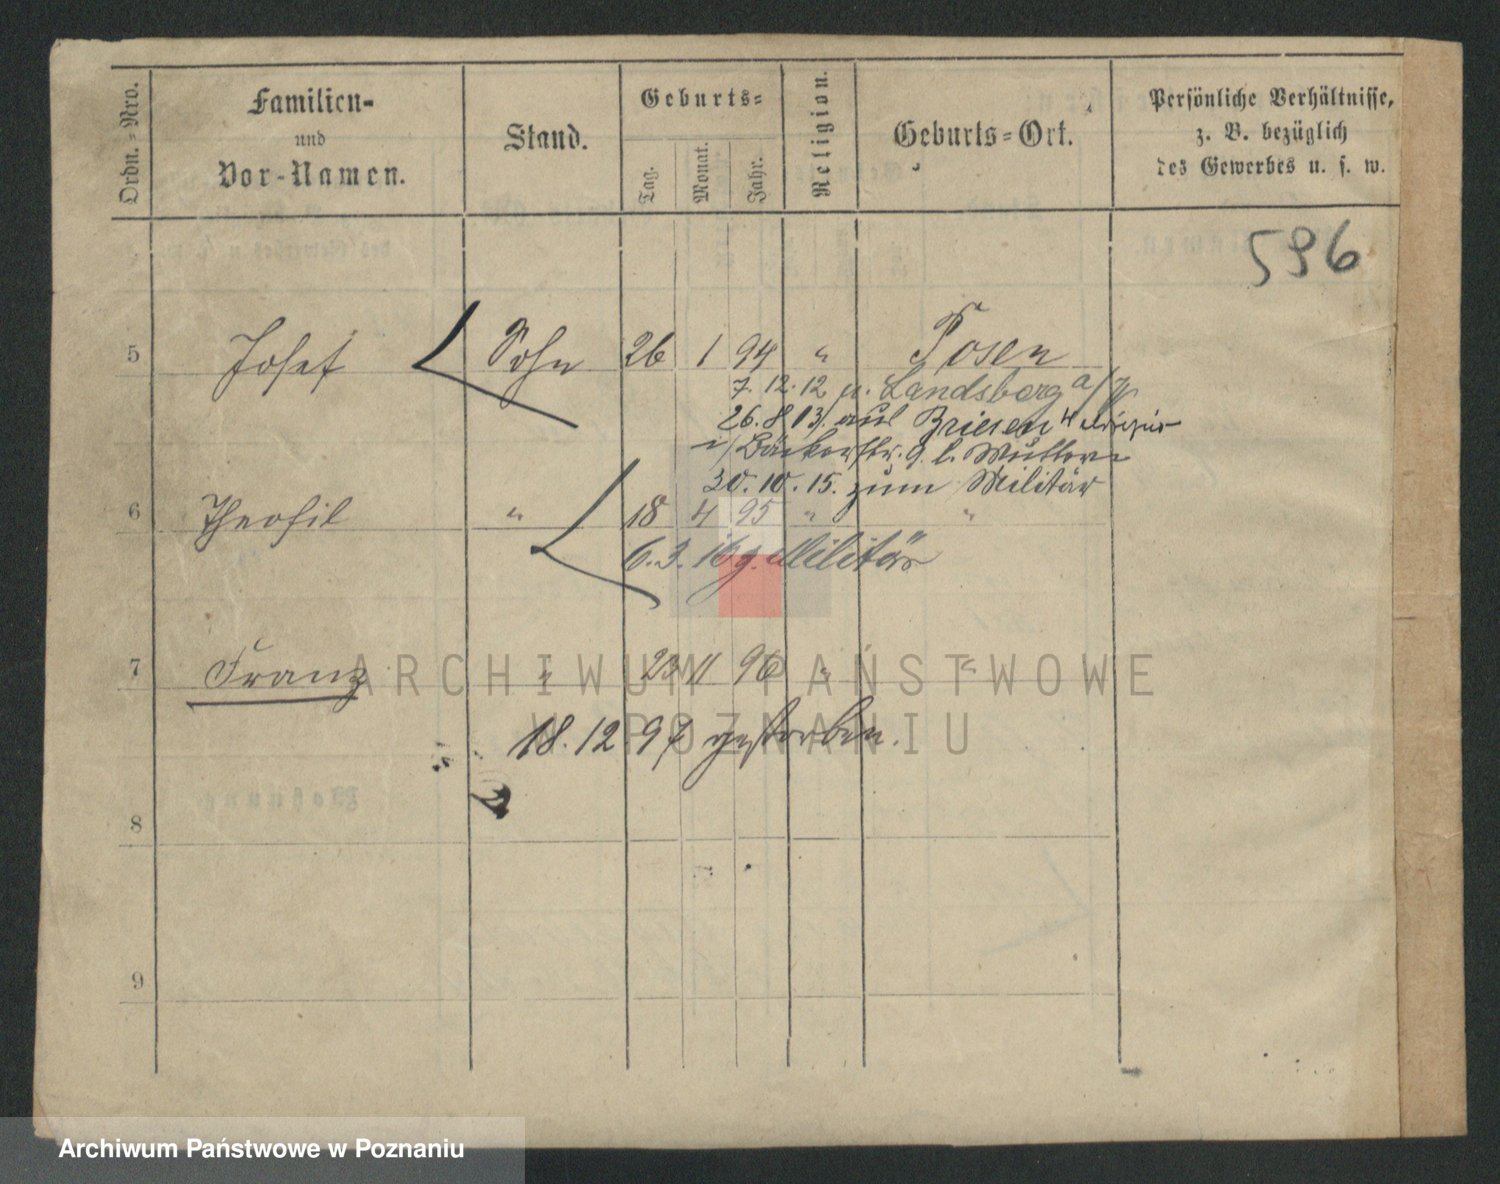 Ordn.-Nro.
Familien-
und
Vor-Namen.
Stand.
Geburts-
Tag.
Monat.
Jahr.
Religion.
Geburts-Ort.
Persönliche Verhältnisse,
z. B. bezüglich
des Gewerbes u. s. w.
596
5 Josef Sohn 26 1 94 " Posen
7.12.12 n. Landsberg a/
26.8.13. aus Briesen
Bäckerstr. 9
30.10.15. zum Militär
6 Theofil " 18 4 95 " "
6.3.16 z. Militär
7 Franz " 23 11 96 " "
18.12 97 gestorben.
8
9
ARCHIWUM PAŃSTWOWE
W POZNANIU
Archiwum Państwowe w Poznaniu